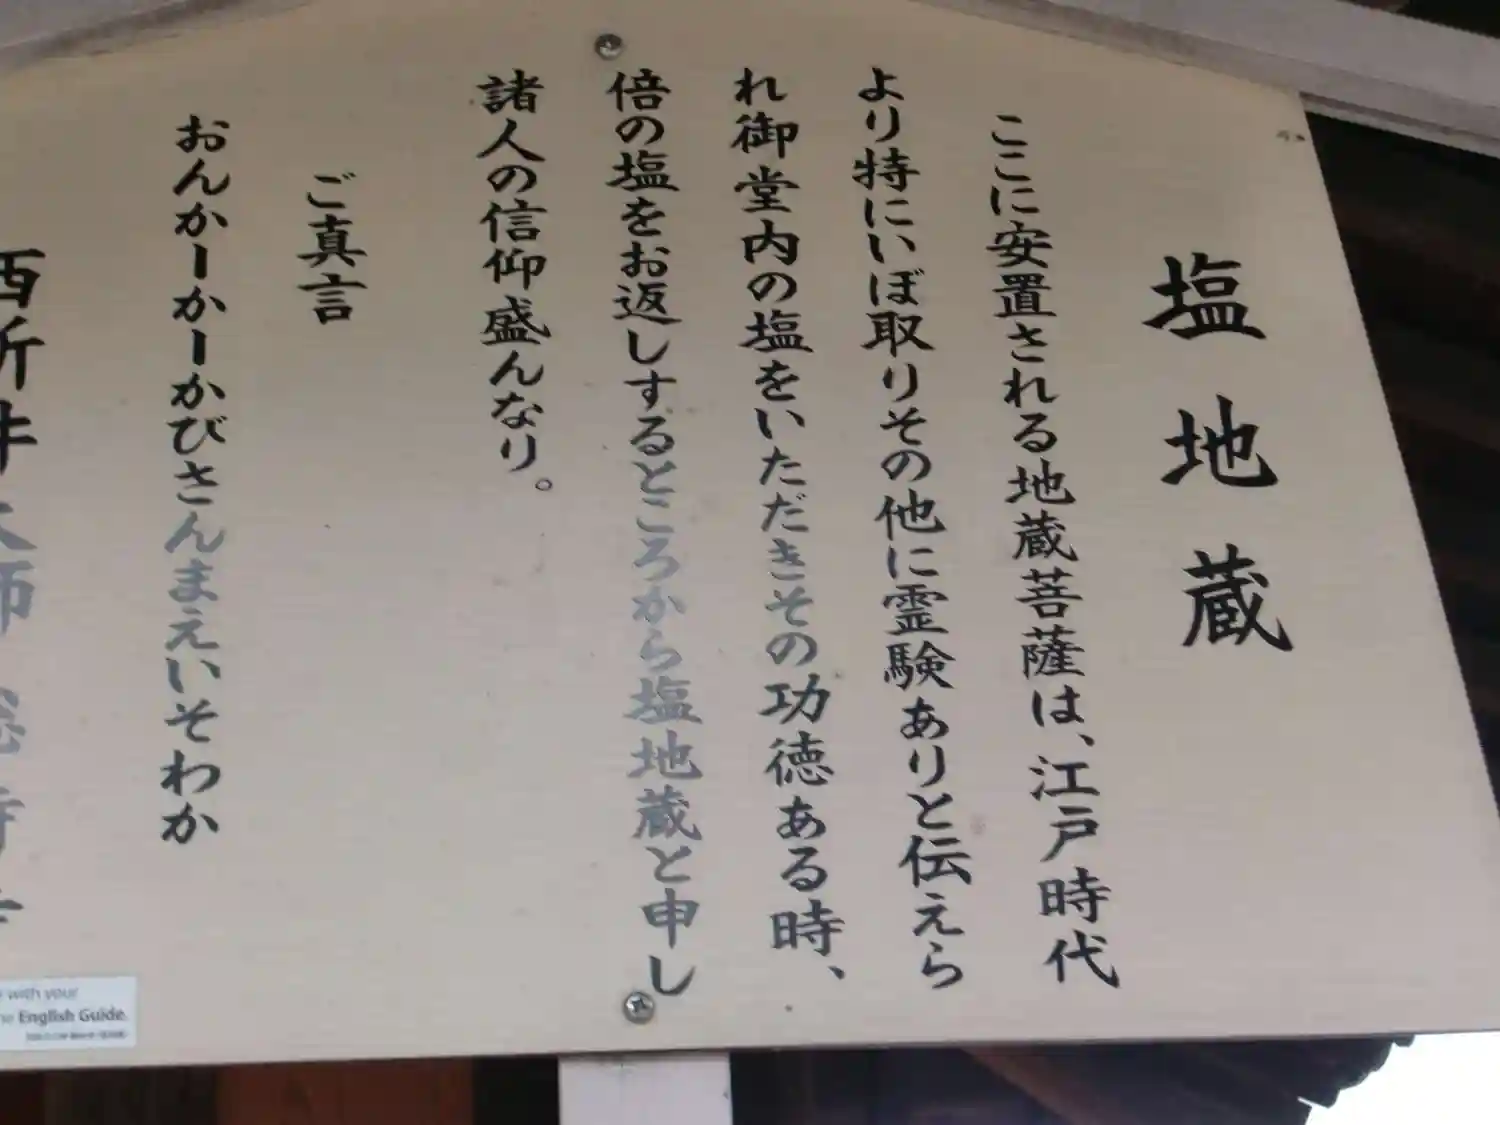 塩地蔵
ここに安置される地蔵菩薩は、江戸時代
より特にいぼ取りその他に霊験ありと伝えら
れ御堂内の塩をいただきその功徳ある時、
倍の塩をお返しするところから塩地蔵と申し
諸人の信仰盛んなり。
ご真言
おんかーかーかびさんまえいそわか
西新井大師
with your
English Guide.